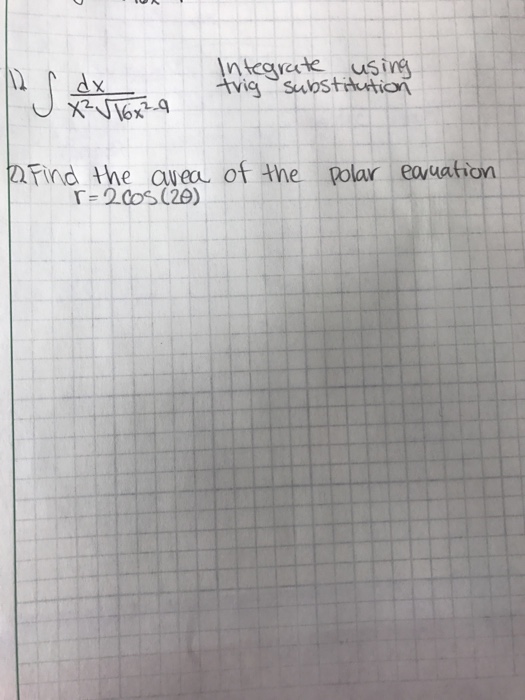 1) ∫ dx / x²√16x²-9 Integrate using
trig substitution
2) Find the area of the polar equation
r=2cos(2θ)